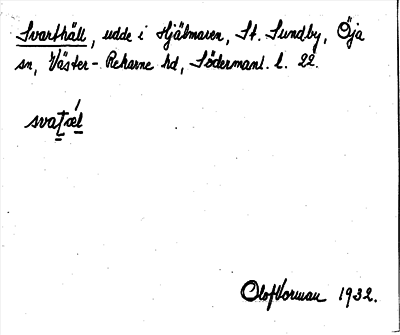 Svarthäll, udde i Hjälmaren, St. Sundby, Öja
sn, Väster-Rekarne hd, Södermanl. l. 22.
svaṯæ̀l
Olof Vorman 1932.